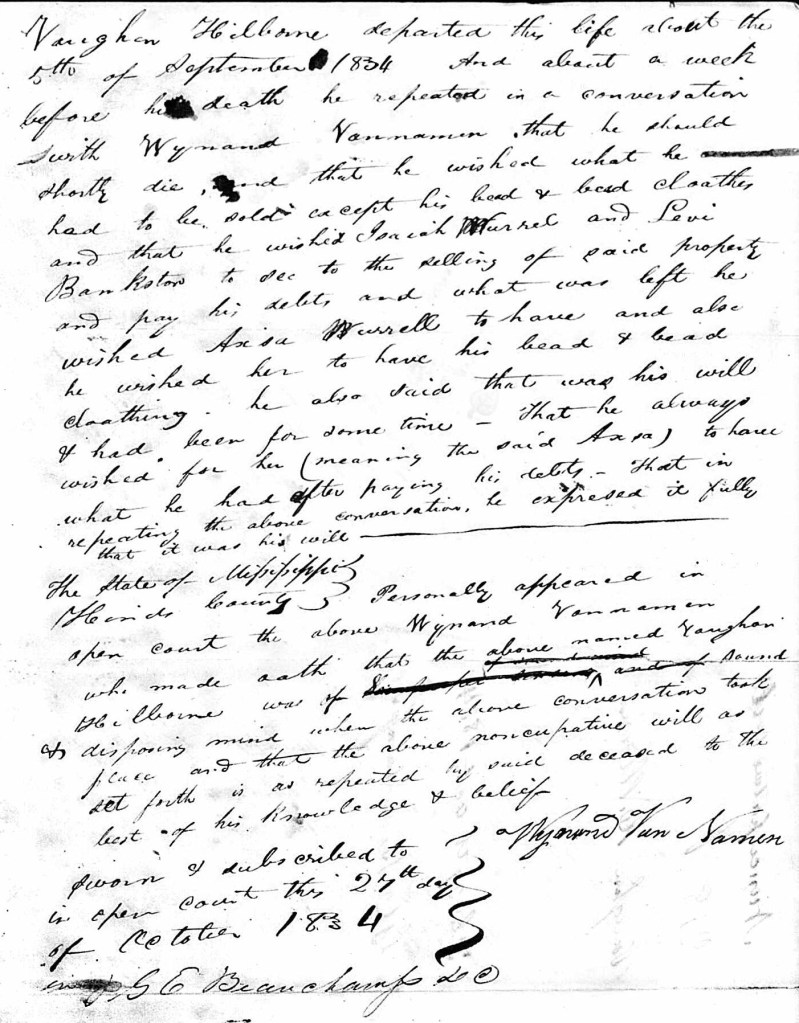 Vaughan Hilborne departed this life about the
5th of September 1834 And about a week
before his death he repeated in a conversation
with Wynand Vannamen that he should
shortly die, and that he wished what he
had to be sold except his bead & bead cloathes
and that he wished Isaiah Wurrel and Levi
Bankston to see to the selling of said property
and pay his debts and what was left he
wished Axsa Wurrell to have and also
he wished her to have his bead & bead
cloathing. he also said that was his will
& had been for some time - That he always
wished for her (meaning the said Axsa) to have
what he had after paying his debts - That in
repeating the above conversation, he expresed it fully
that it was his will
The State of Mississippi
Hinds County } Personally appeared in
open court the above Wynand Vannamen
who made oath that the above named Vaughan
Hilborne was of and of sound
& disposing mind when the above conversation took
place and that the above noncupative will as
set forth is as repeated by said deceased to the
best of his knowledge & belief
Wynand Van Namen
Sworn & subscribed to
in open court this 27th day
of October 1834
G E Beauchamp